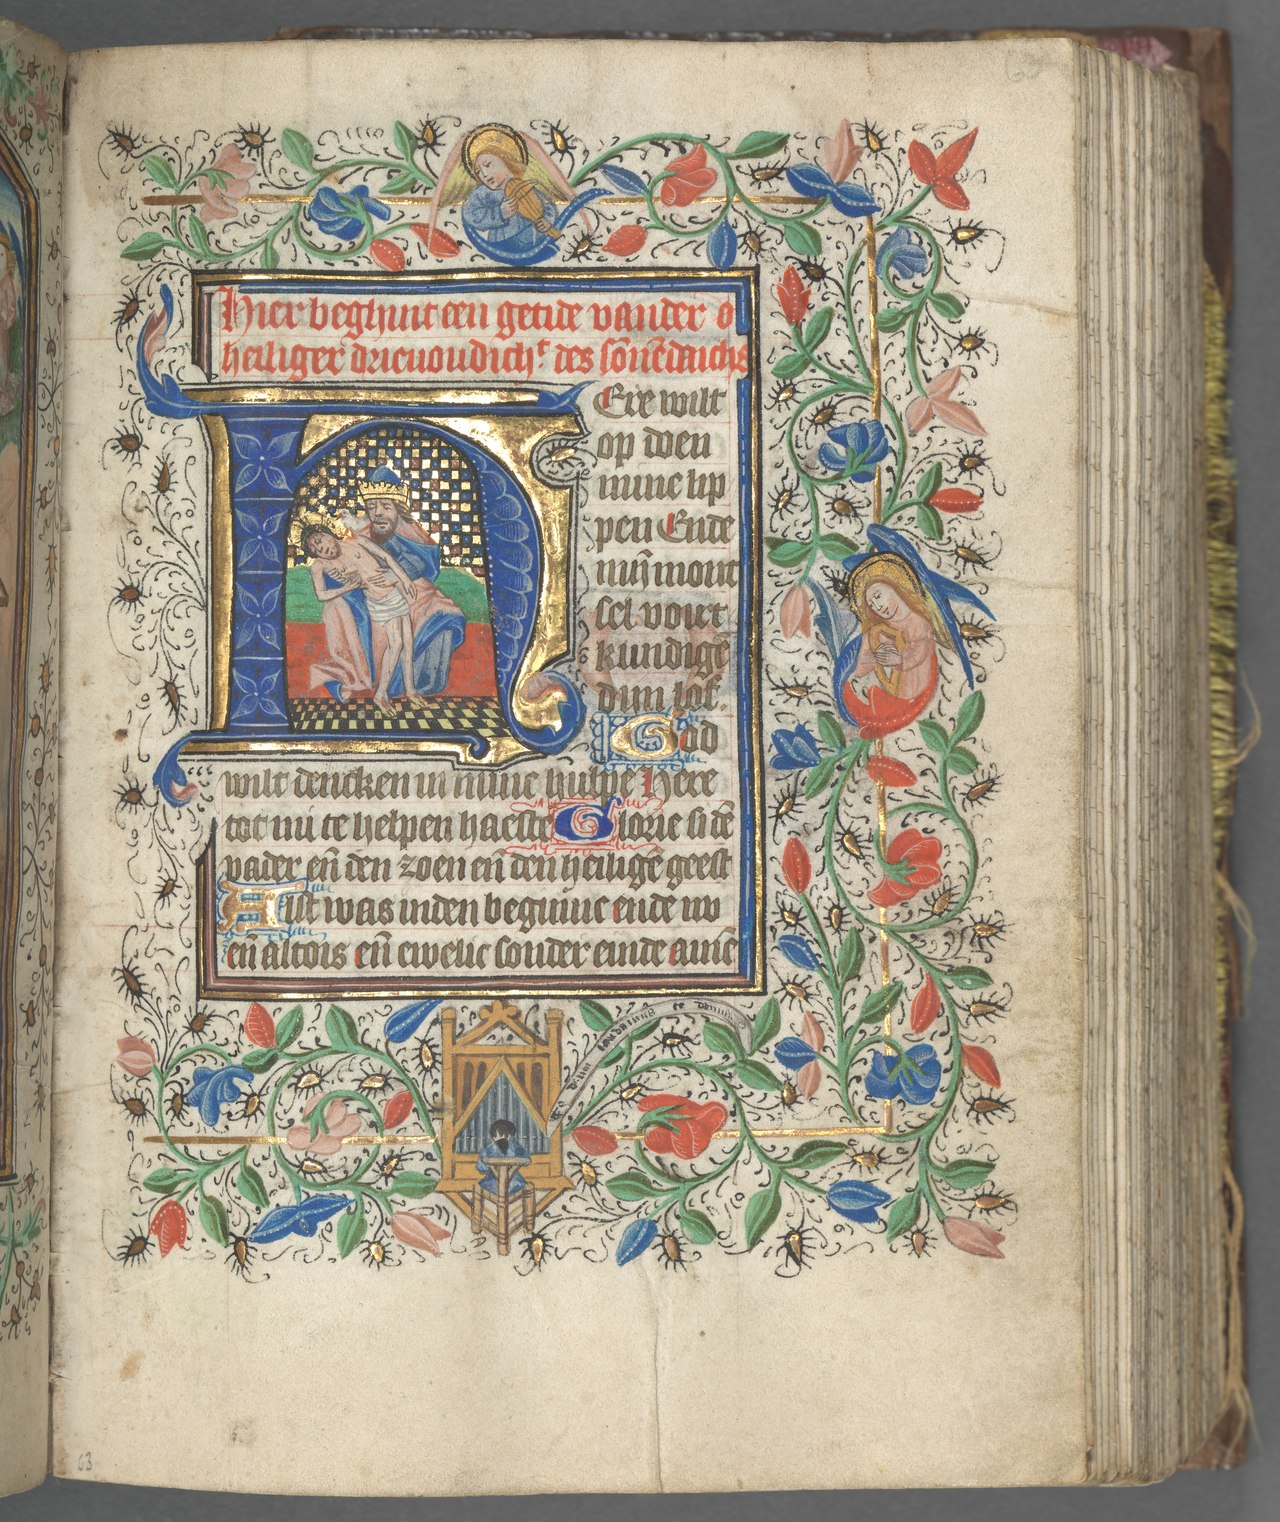 Hier beghint een getide vander o
heiliger drievoudich.t des sōnēdaichs
HEre wilt
op doen
mine lip
pen Ende
mijn mont
sel voirt
kundigē
dijn lof.
God
wilt dencken in mine hulpe Here
tot mi te helpen haeste Glorie si dē
vader eñ den zoen eñ den heiligē geest
Alst was inden beginne ende nv
eñ altois eñ ewelic sonder einde amē
te deum laudamus te dominū
63
63